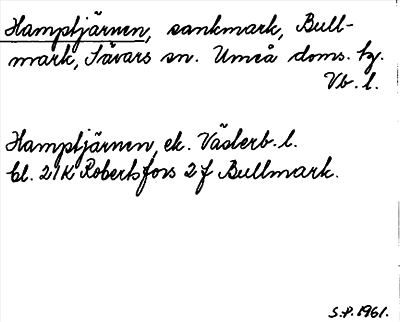 Hamptjärnen, sankmark, Bull-
mark, Sävars sn. Umeå doms. tg.
Vb. l.
Hamptjärnen, ek. Västerb. l.
bl. 21K Robertsfors 2f Bullmark.
S.P. 1961.